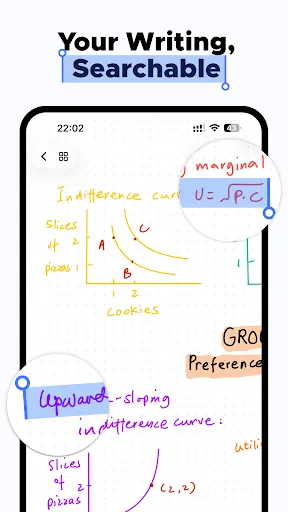 Your Writing,
Searchable
22:02
43
marginal
U = √P.C
Indifference curv
Slices
of 2
pizzas 1
A
C
B
1 2
cookies
1
GRO
Preference
Upward--sloping
indifference curve:
utili
Slices
of 2
pizzas
(2,2)